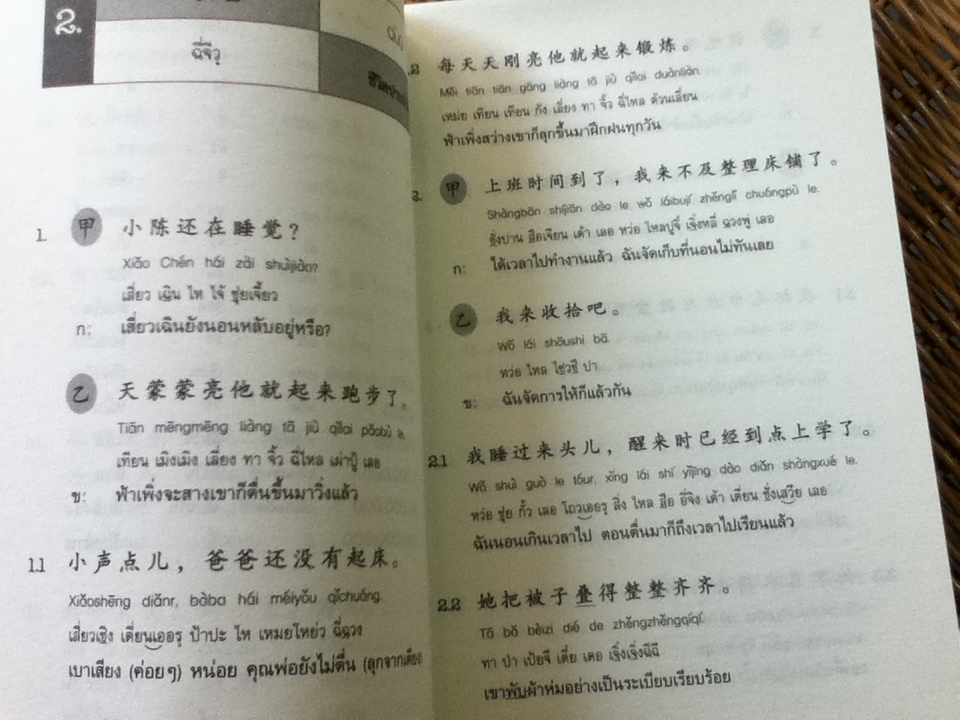 2.
ฉี่จีวู่
1. 甲 小陈还在睡觉?
Xiǎo Chén hái zài shuìjiào?
เสี่ยว เฉิน ไห ไจ้ ชุ่ยเจี้ยว
ก: เสี่ยวเฉินยังนอนหลับอยู่หรือ?
乙 天蒙蒙亮他就起来跑步了。
Tiān mēngmēng liàng tā jiù qǐlai pǎobù le.
เทียน เมิงเมิง เลี่ยง ทา จิ้ว ฉี่ไหล เผ่าปู้ เลอ
ข: ฟ้าเพิ่งจะสางเขาก็ตื่นขึ้นมาวิ่งแล้ว
1.1 小声点儿，爸爸还没有起床。
Xiǎoshēng diǎnr, bàba hái méiyǒu qǐchuáng.
เสี่ยวเซิง เตี่ยนเออรฺ ป้าปะ ไห เหมยโหย่ว ฉี่ฉวง
เบาเสียง (ค่อยๆ) หน่อย คุณพ่อยังไม่ตื่น (ลุกจากเตียง)
.2 每天天刚亮他就起来锻炼。
Měi tiān tiān gāng liàng tā jiù qǐlai duànliàn.
เหม่ย เทียน เทียน กัง เลี่ยง ทา จิ้ว ฉี่ไหล ต้วนเลี่ยน
ฟ้าเพิ่งสว่างเขาก็ลุกขึ้นมาฝึกฝนทุกวัน
2. 甲 上班时间到了，我来不及整理床铺了。
Shàngbān shíjiān dào le wǒ láibují zhěnglǐ chuángpù le.
ชั่งปาน สือเจียน เต้า เลอ หว่อ ไหลปูจี๋ เจิ่งหลี่ ฉวงพู่ เลอ
ก: ได้เวลาไปทำงานแล้ว ฉันจัดเก็บที่นอนไม่ทันเลย
乙 我来收拾吧。
Wǒ lái shōushi bā.
หว่อ ไหล โซวซึ ปา
ข: ฉันจัดการให้ก็แล้วกัน
2.1 我睡过来头儿，醒来时已经到点上学了。
Wǒ shuì guò le tóur, xǐng lái shí yǐjīng dào diǎn shàngxué le.
หว่อ ชุ่ย กั้ว เลอ โถวเออรฺ สิ่ง ไหล สือ อี่จิง เต้า เตี่ยน ชั่งเสวีย เลอ
ฉันนอนเกินเวลาไป ตอนตื่นมาก็ถึงเวลาไปเรียนแล้ว
2.2 她把被子叠得整整齐齐。
Tā bǎ bèizi dié de zhěngzhěngqíqí.
ทา ป่า เป้ยจึ เตี๋ย เตอ เจิ่งเจิ่งฉีฉี
เขาพับผ้าห่มอย่างเป็นระเบียบเรียบร้อย